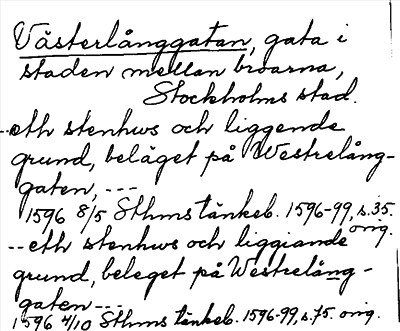 Västerlånggatan, gata i
staden mellan broarna,
Stockholms stad.
--eth stenhws och liggende
grund, beläget på Westrelång-
gaten, ---
1596 8/5 Sthms tänkeb. 1596-99, s. 35.
orig.
--eth stenhws och liggiande
grund, beleget på Westrelång-
gaten---
1596 4/10 Sthms tänkeb. 1596-99, s. 75. orig.